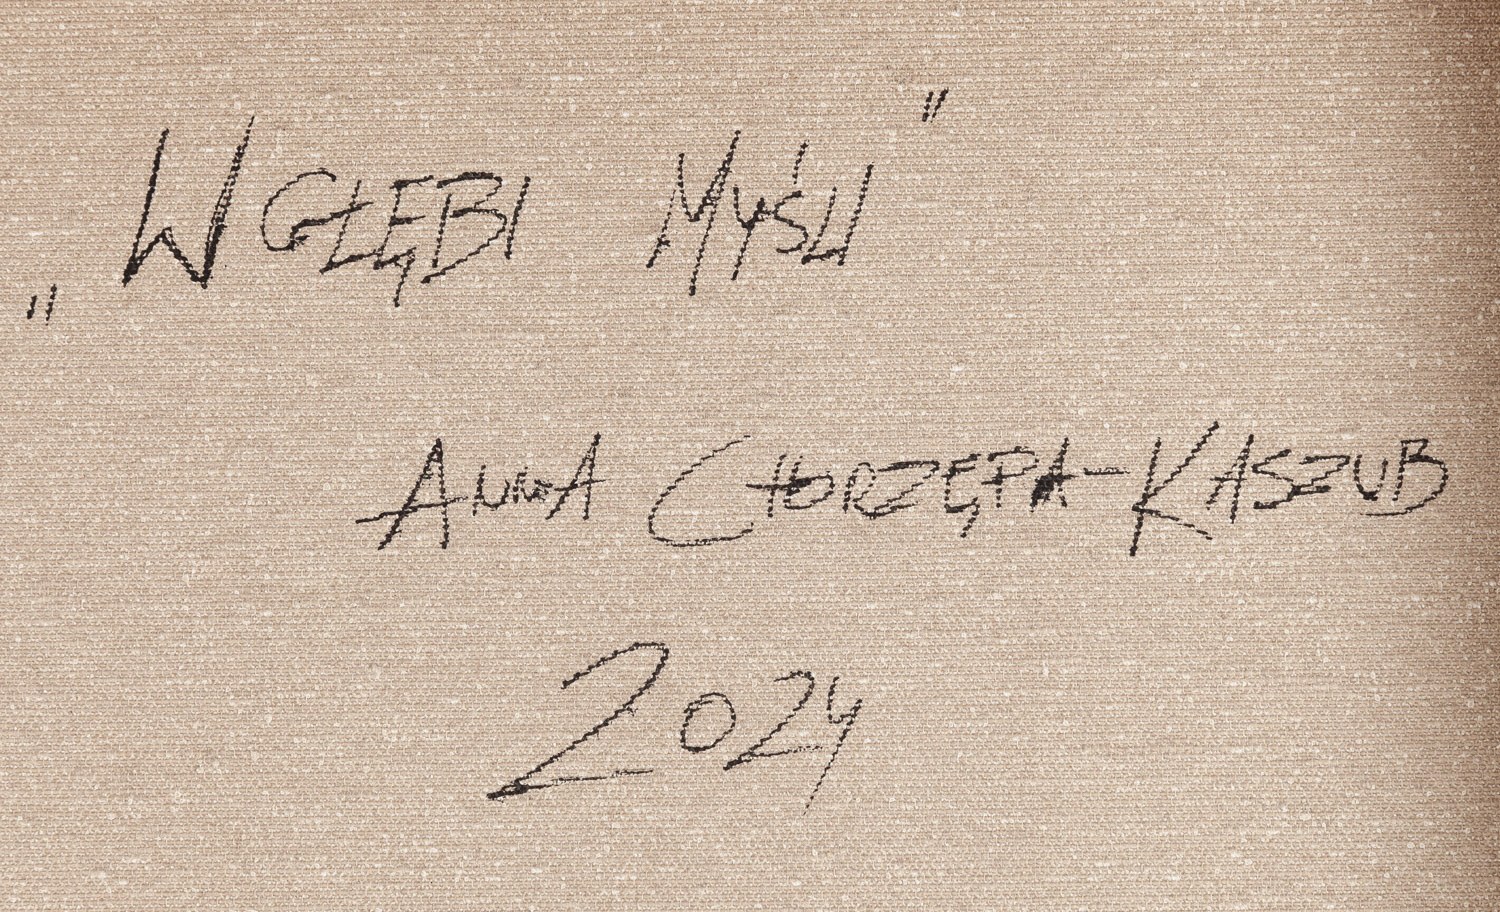 „W GŁĘBI MYŚLI"
ANNA CHORZĘPA-KASZUB
2024